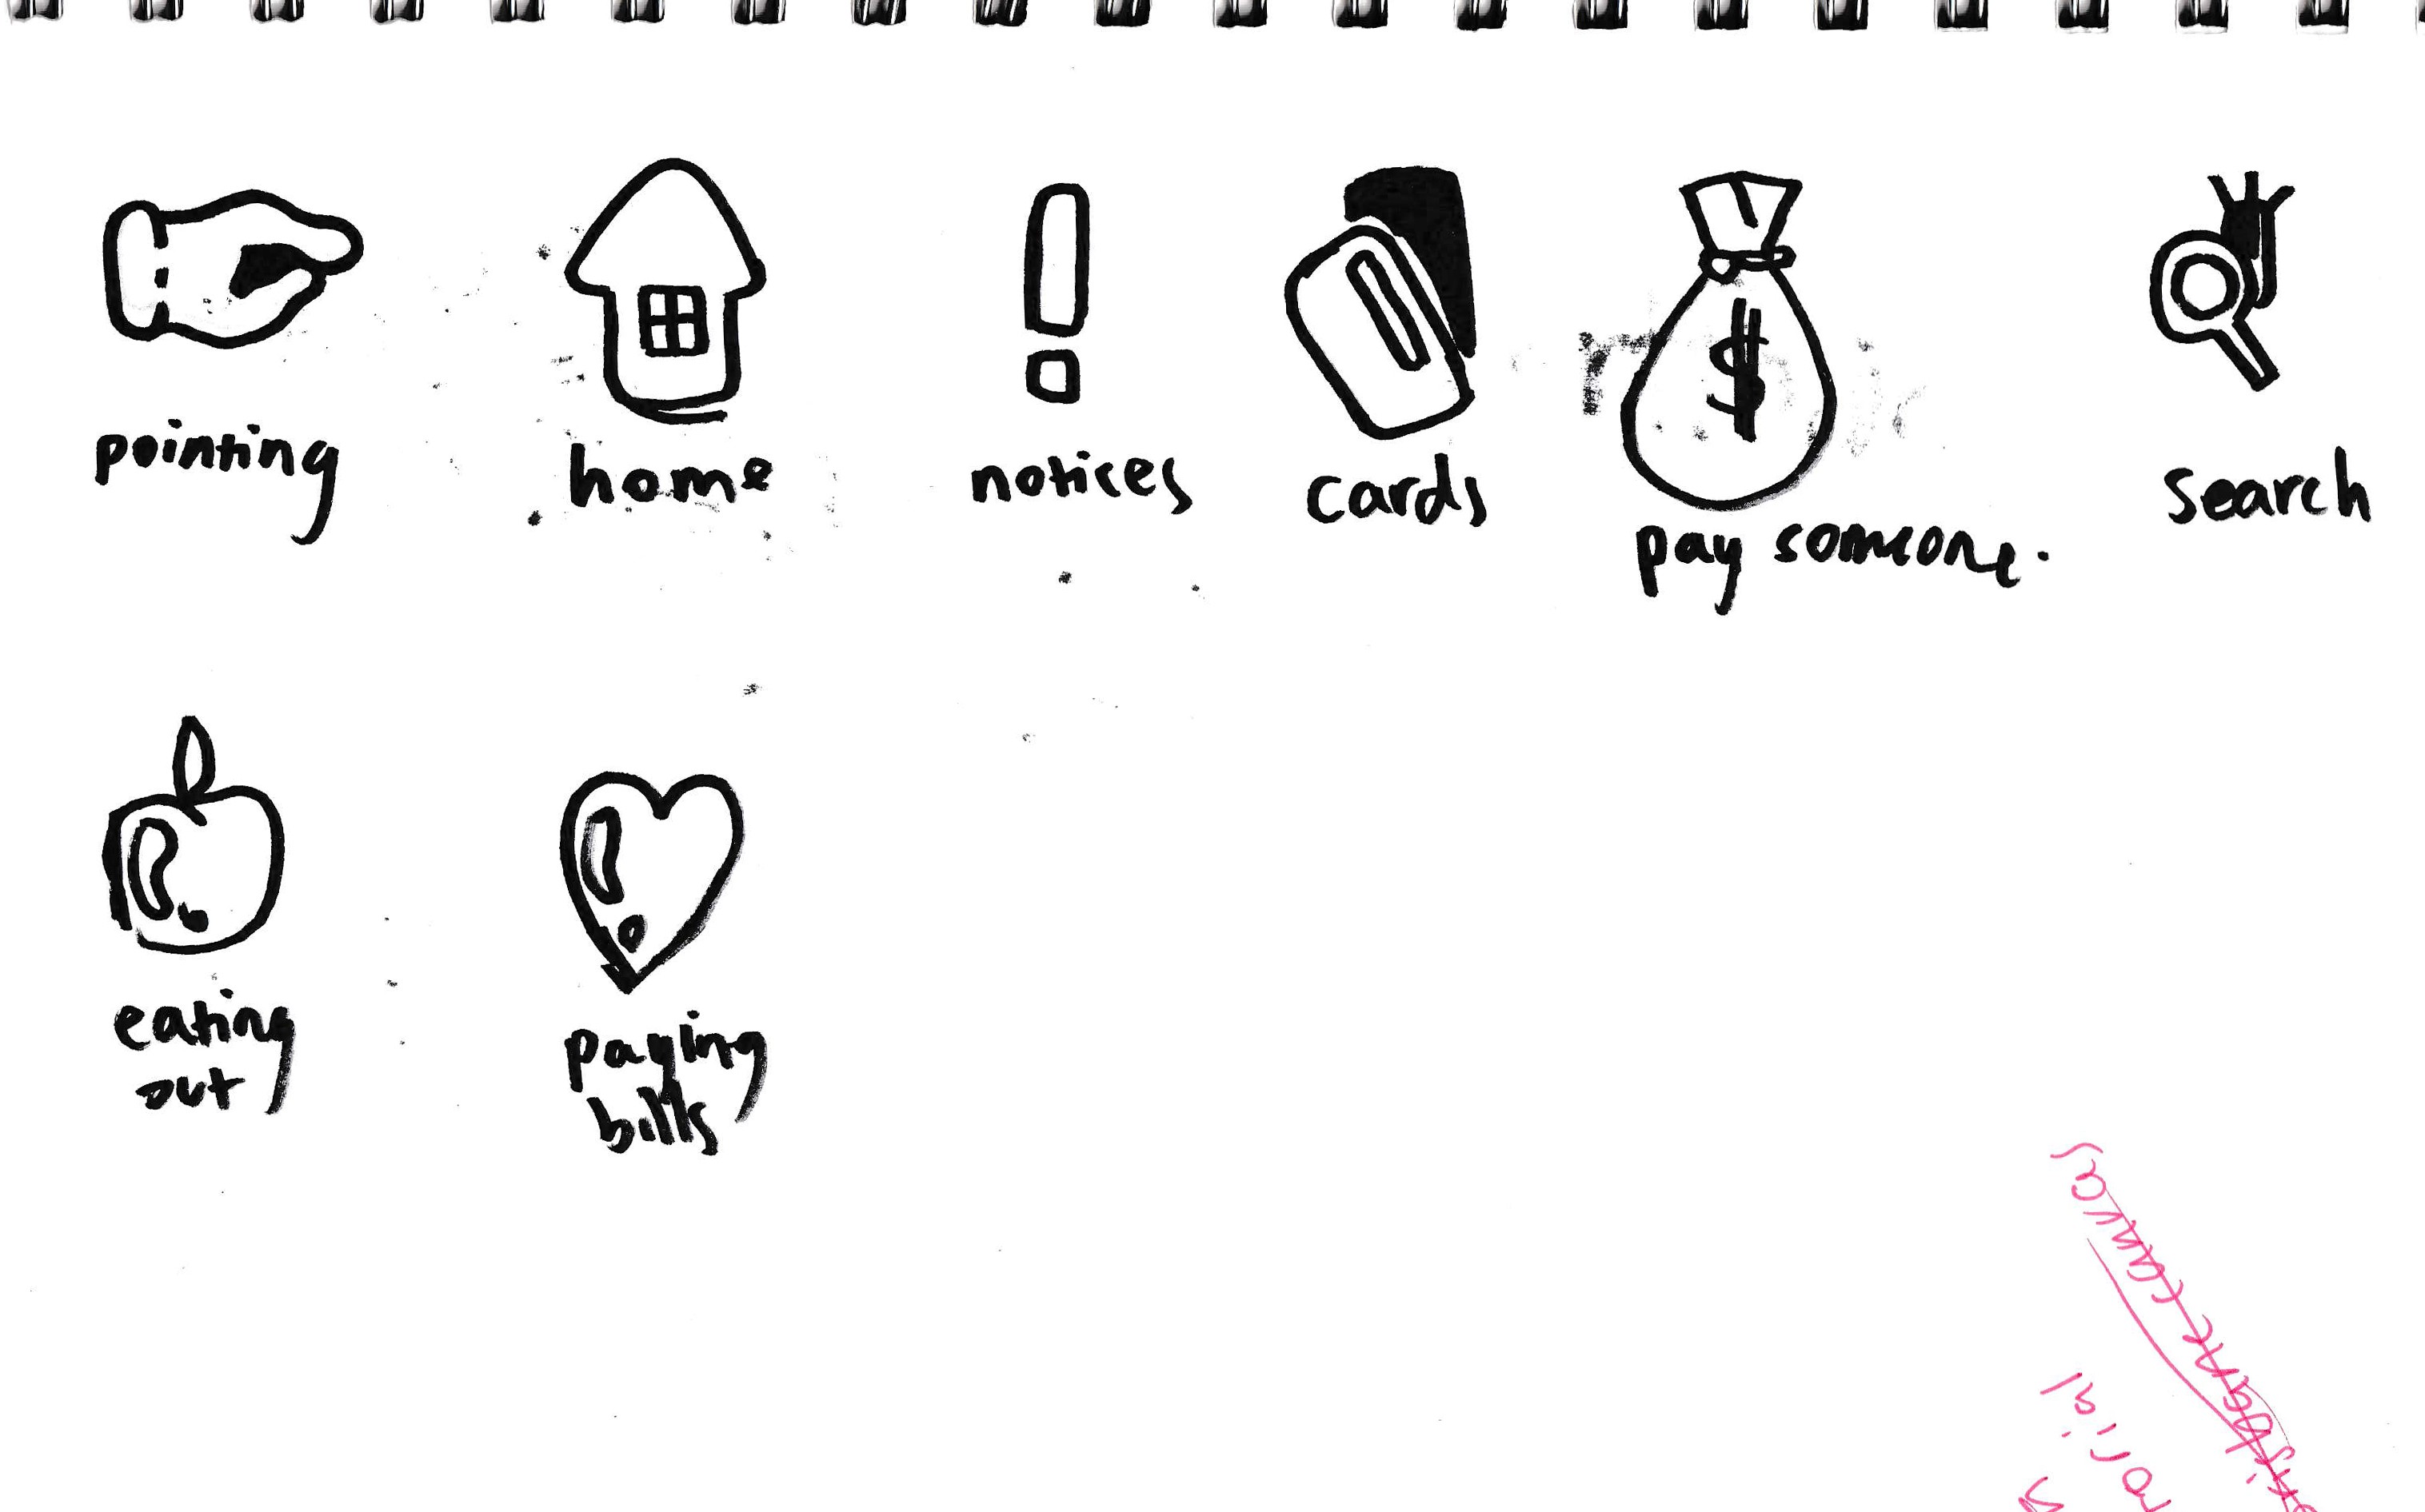 pointing
home
notices
cards
pay someone.
search
$
eating
out
paying
bills